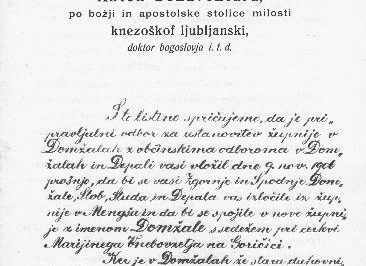 po božji in apostolske stolice milosti
knezoškof ljubljanski,
doktor bogoslovja i. t. d.
S to listino spričujemo, da je pri-
pravljalni odbor za ustanovitev župnije v
Domžalah z občinskima odboroma v Dom-
žalah in Depali vasi vložil dne 9. nov. 1906
prošnjo, da bi se vasi Zgornje in Spodnje Dom-
žale, Stob, Študa in Depala vas izločile iz žup-
nije v Mengšu in da bi se spojile v novo župni-
jo z imenom Domžale s sedežem pri cerkvi
Marijinega Vnebovzetja na Goričici.
Ker je v Domžalah že stara duhovni